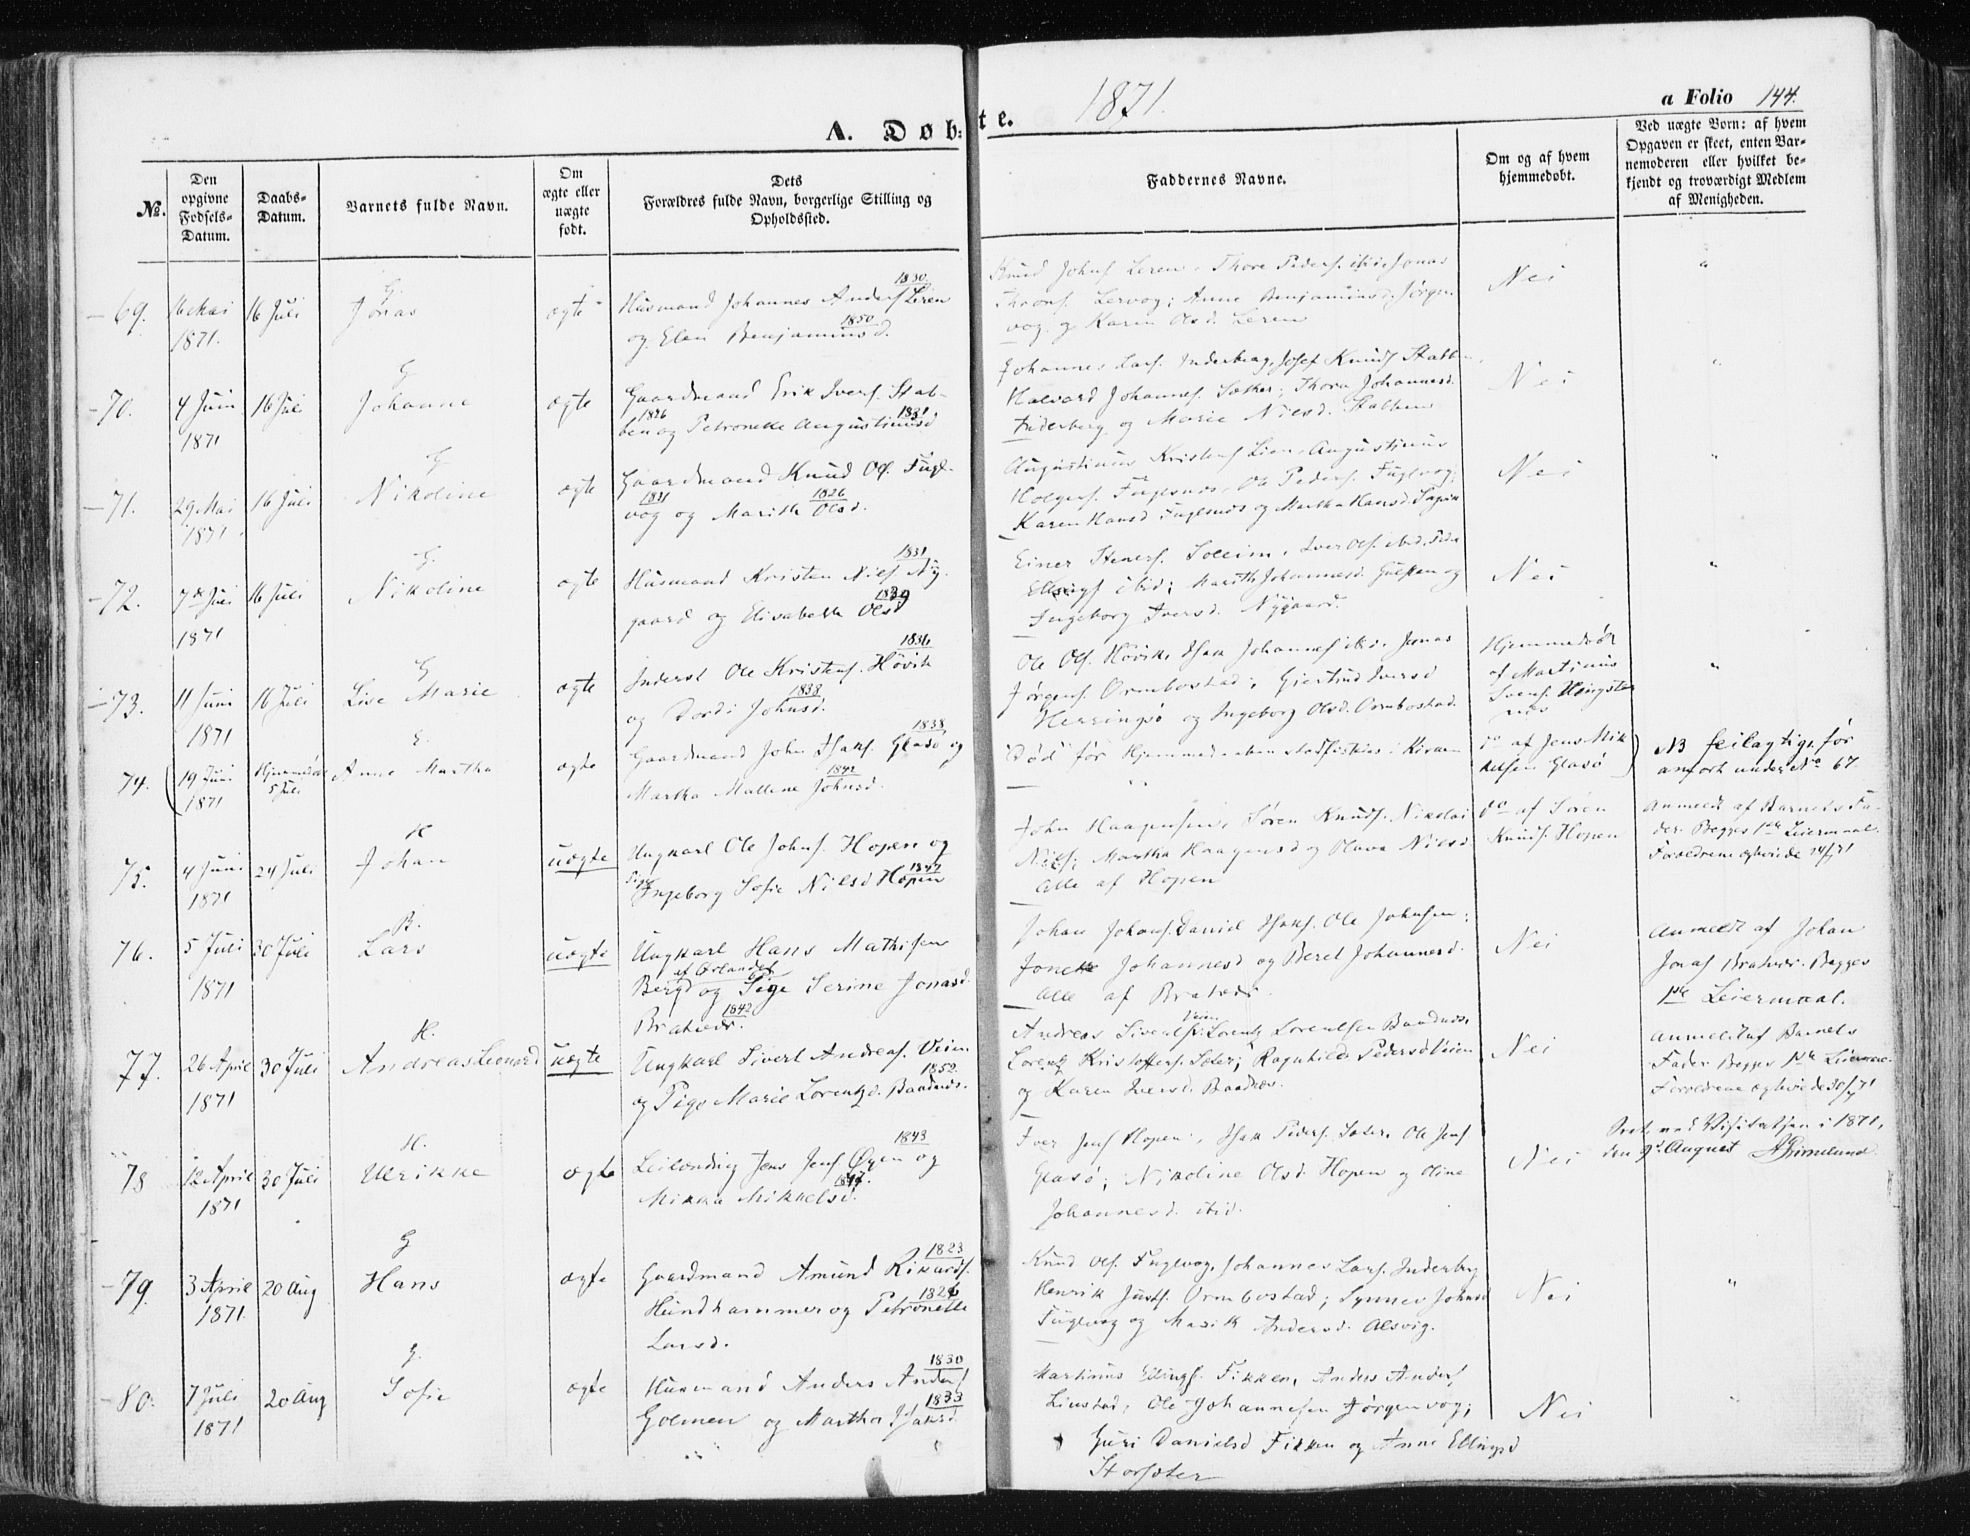 1871.
a Folio 144.
A. Døbte.
No.
Den opgivne Fødsels-Datum.
Daabs-Datum.
Barnets fulde Navn.
Om ægte eller uægte født.
Dets Forældres fulde Navn, borgerlige Stilling og Opholdssted.
Faddernes Navne.
Om og af hvem hjemmedøbt.
Ved uægte Børn: af hvem Opgaven er skeet, enten Barnemoderen eller hvilket bekjendt og troværdigt Medlem af Menigheden.
69. 16 Mai 1871. 16 Juli
G.
Jonas
ægte
1830
Husmand Johannes Anders. Leren
1850
og Elen Benjaminsd.
Knud Johns. Leren, Thore Peders. ibid, Jonas
Lervog; Anne Benjaminsd. Jørgen-
vog og Karen Olsd. Leren
Nei
"
70. 4 Juni 1871 16 Juli
G
Johanne
ægte
Gaardmand Erik Ivers. Stab-
1826 1831
ben og Petronelle Augustinusd
Johannes Lars. Inderberg, Josef Knuds. Stabben,
Halvard Johannes. Sæther; Thora Johannesd.
Inderberg og Marie Nilsd. Stabben
Nei
"
71. 29 Mai 1871 16 Juli
G
Nikoline
ægte
Gaardmand Knud Ols. Fugl-
1831 1826
vog og Marith Olsd.
Augustinus Kristens. Lien, Augustinus
Holgers. Fuglsnes, Ole Peders. Fuglvog;
Karen Hansd Fuglsnes og Martha Hansd.
Nei
"
72. 7de Juli 1871 16 Juli
G.
Nikoline
ægte
1831
Husmand Kristen Nils. Ny-
1839
gaard og Elisabeth Olsd
Einer Steners. Soleim, Iver Ols. ibid, Peder
Ellings ibid; Marith Johannesd. Gulsten og
Ingeborg Iversd. Nygaard.
Nei
"
73. 11 Juni 1871 16 Juli
G
Lise Marie
ægte
1836
Inderst Ole Kristens. Hövik
1838
og Dordi Johnsd.
Ole Ols. Hövik, Isak Johannes. ibid, Jonas
Jørgens. Ormbostad; Giertrud Iversd
Herringsø og Ingeborg Olsd. Ormbostad.
Hjemmedöbt
af Martinus
Svens. Hongstenes
"
74. 19 Juni 1871 Hjemmedøbt 5 Juli
E.
Anne Martha
ægte
1838
Gaardmand John Isaks. Glasø og
1842
Martha Mallene Johnsd.
Død før Hjemmedaaben stadfæstedes i Kirken
do af Jens Mikkelsen Glasö
NB feilagtigt før
anført under No 67.
75. 4 Juni 1871 24 Juli
H
Johan
uægte
Ungkarl Ole Johns. Hopen og
Pige 1847
Ingeborg Sofie Nilsd Hopen
John Haagensen, Sören Knuds. Nikolai
Nils; Martha Haagensd og Olava Nilsd
Alle af Hopen
do af Sören
Knuds. Hopen
Anmeldt af Barnets Fa-
der. Begges 1ste Leiermaal.
Forældrene ægteviede 24/7 71
76. 5 Juli 1871 30 Juli
B.
Lars
uægte
Ungkarl Hans Mathisen
af Ørlandet
Berg og Pige Serine Jonasd.
1842
Bratvær.
Johan Johans. Daniel Isaks. Ole Johnsen;
Jonette Johannesd og Beret Johannesd.
Alle af Bratvær.
Nei
Anmeldt af Johan
Jonas. Bratvær. Begges
1ste Leiermaal.
77. 26 April 1871 30 Juli
H.
Andreas Leonard
uægte
Ungkarl Sivert Andreas. Veien
1852
og Pige Marie Lorentzd. Baadnes.
Andreas Siverts. Veien, Lorentz Lorentsen Baadnes,
Lorentz Kristoffers. Sæter; Ragnhild Pedersd Veien
og Karen Iversd. Baadnes.
Nei
Anmeldt af Barnets
Fader Begges 1ste Leiermaal
Forældrene ægteviede 30/7 71
78 12 April 1871 30 Juli
H.
Ulrikke
ægte
1843
Leilænding Jens Jens Øyen og
1847.
Mikka Mikkelsd.
Iver Jens Hopen, Isak Peders. Sæter, Ole Jens
Glasø; Nikoline Olsd Hopen og Oline
Johannesd. ibid.
Nei
Seet ved Visitatsen i 1871,
den 9d August AGrimelund
79. 3 April 1871. 20 Aug
G
Hans
ægte
1823
Gaardmand Amund Rikards.
1826
Hundhammer og Petronette
Larsd.
Knud Ols. Fuglvog, Johannes Lars. Inderberg
Henrik Justs. Ormbostad; Synnev Johnsd
Fuglvog og Marik Andersd. Alsvig.
Nei
"
80. 7 Juli 1871 20 Aug
G.
Sofie
ægte
1830
Husmand Anders Anders
1833
Golmen og Martha Isaksd.
Martinus Ellings. Fikken, Anders Anders
Linstad, Ole Johannesen Jørgenvog;
Guri Danielsd Fikken og Anne Ellingsd
Storsæter
Nei
"